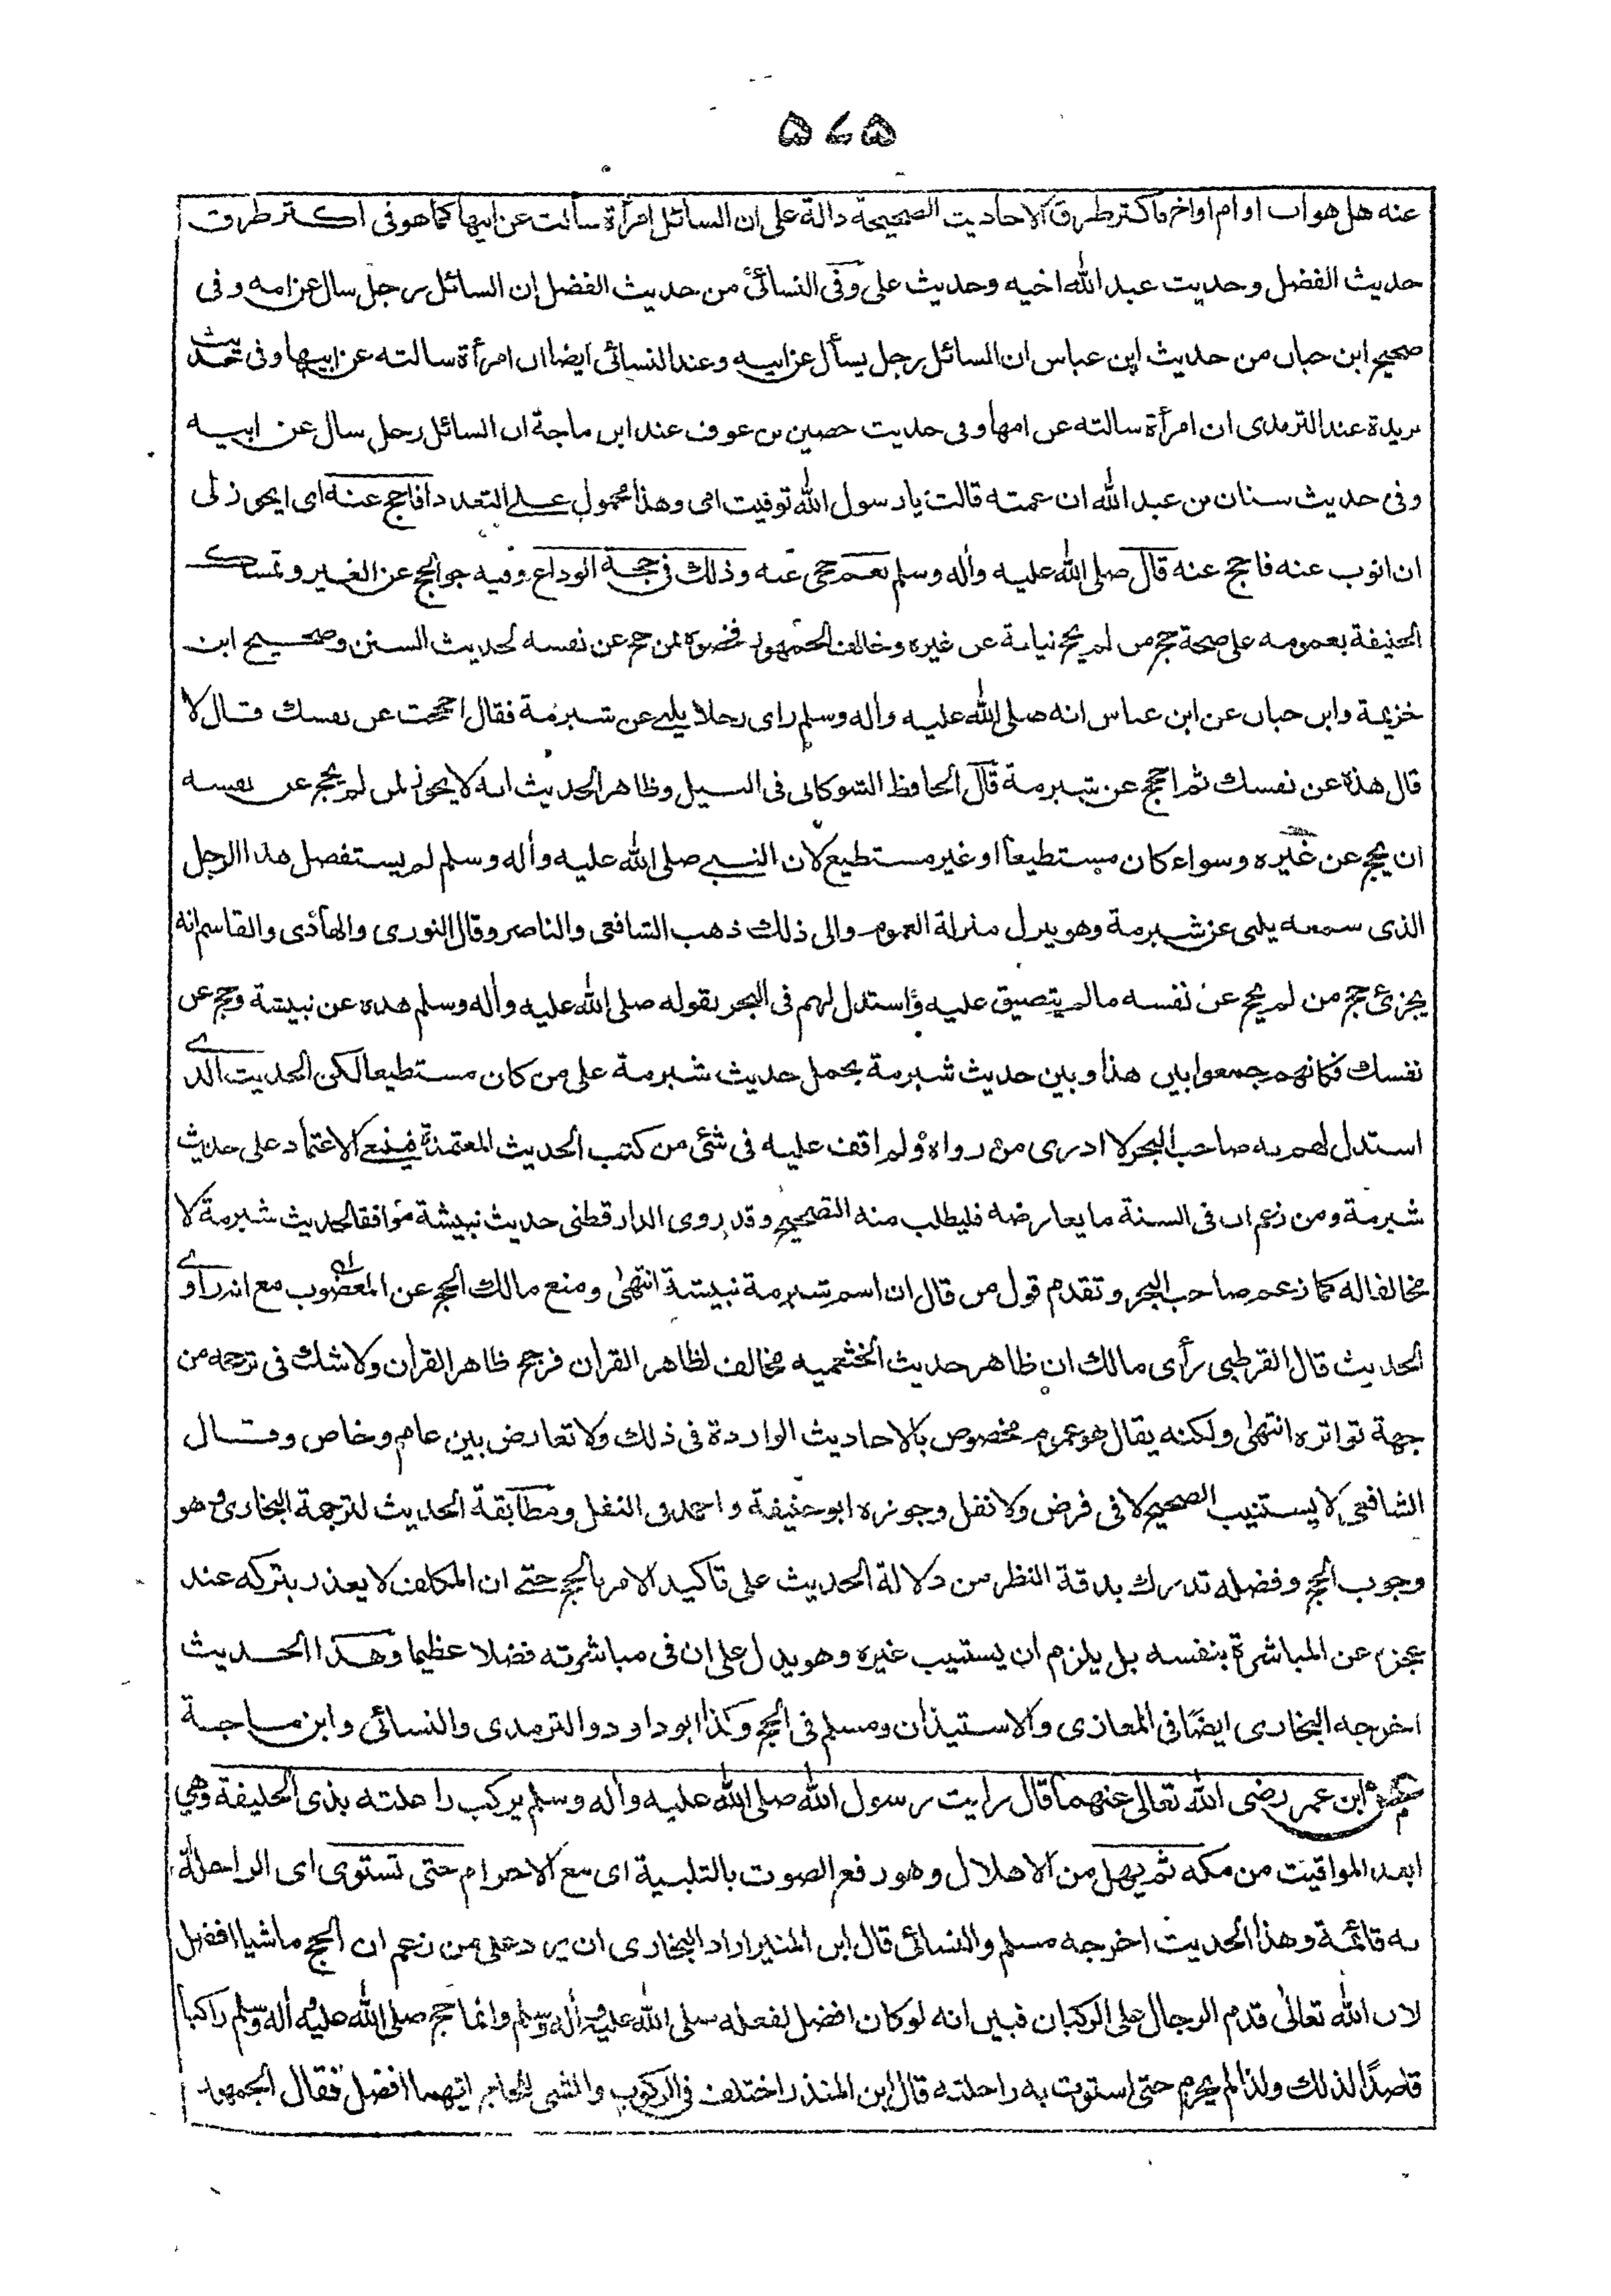 ۵۷۵
عنه هل هو اب او ام او اخ فاكثر طرق الاحاديث الصحيحة دالة على ان السائل امرأة سألت عن ابيها كما هو فى اكثر طرق
حديث الفضل وحديث عبد الله اخيه وحديث على وفى النسائى من حديث الفضل ان السائل رجل سال عن امه وفى
صحيح ابن حبان من حديث ابن عباس ان السائل رجل يسأل عن ابيه وعند النسائى ايضا ان امرأة سالته عن ابيها وفى حديث
بريدة عند الترمذى ان امرأة سالته عن امها وفى حديث حصين بن عوف عند ابن ماجة ان السائل رجل سال عن ابيه
وفى حديث سنان بن عبد الله ان عمته قالت يا رسول الله توفيت امى وهذا محمول على التعدد افاحج عنه اى ايجوز لى
ان انوب عنه فاحج عنه قال صلى الله عليه وأله وسلم نعم حجى عنه وذلك فى حجة الوداع وفيه جواز الحج عن الغير وتمسك
الحنيفة بعمومه على صحة حج من لم يحج نيابة عن غيره وخالف الجمهور فخصوه بمن حج عن نفسه لحديث السنن وصحيح ابن
خزيمة وابن حبان عن ابن عباس انه صلى الله عليه وأله وسلم راى رجلا يلبى عن شبرمة فقال احججت عن نفسك قال لا
قال هذه عن نفسك ثم احجج عن شبرمة قال الحافظ الشوكانى فى السيل وظاهر الحديث انه لا يجوز لمن لم يحج عن نفسه
ان يحج عن غيره وسواء كان مستطيعا او غير مستطيع لان النبى صلى الله عليه وأله وسلم لم يستفصل هذا الرجل
الذى سمعه يلبى عن شبرمة وهو ينزل منزلة العموم والى ذلك ذهب الشافعى والناصر وقال الثورى والهادى والقاسم انه
يجزئ حج من لم يحج عن نفسه ما لم يتضيق عليه واستدل لهم فى البحر بقوله صلى الله عليه وأله وسلم هذه عن نبيشة وحج عن
نفسك فكانهم جمعوا بين هذا وبين حديث شبرمة بحمل حديث شبرمة على من كان مستطيعا لكن الحديث الذى
استدل لهم به صاحب البحر لا ادرى من رواه ولم اقف عليه فى شئ من كتب الحديث المعتمدة فينبغى الاعتماد على حديث
شبرمة ومن زعم ان فى السنة ما يعارضه فليطلب منه التصحيح وقد روى الدارقطنى حديث نبيشة موافقا لحديث شبرمة لا
مخالفا له كما زعم صاحب البحر وتقدم قول من قال ان اسم شبرمة نبيشة انتهى ومنع مالك الحج عن المعضوب مع انه راوى
الحديث قال القرطبى رأى مالك ان ظاهر حديث الخثعميه مخالف لظاهر القران فرجح ظاهر القران ولا شك فى ترجحه من
جهة تواتره انتهى ولكنه يقال هو عموم مخصوص بالاحاديث الواردة فى ذلك ولا تعارض بين عام وخاص وقال
الشافعى لا يستنيب الصحيح لا فى فرض ولا نفل وجوزه ابو حنيفة واحمد فى النفل ومطابقة الحديث لترجمة البخارى وهو
وجوب الحج وفضله تدرك بدقة النظر من دلالة الحديث على تاكيد الامر بالحج حتى ان المكلف لا يعذر بتركه عند
عجزه عن المباشرة بنفسه بل يلزم ان يستنيب غيره وهو يدل على ان فى مباشرته فضلا عظيما وهذا الحديث
اخرجه البخارى ايضًا فى المغازى والاستيذان ومسلم فى الحج وكذا ابو داود والترمذى والنسائى وابن ماجة
عن ابن عمر رضى الله تعالى عنهما قال رايت رسول الله صلى الله عليه وأله وسلم يركب راحلته بذى الحليفة وهى
ابعد المواقيت من مكه ثم يهل من الاهلال وهو رفع الصوت بالتلبية اى مع الاحرام حتى تستوى اى الراحلة
به قائمة وهذا الحديث اخرجه مسلم والنسائى قال ابن المنير اراد البخارى ان يرد على من زعم ان الحج ماشيا افضل
لان الله تعالى قدم الرجال على الركبان فبين انه لو كان افضل لفعله صلى الله عليه وأله وسلم وانما حج صلى الله عليه وأله وسلم راكبا
قاصدًا لذلك ولذا لم يحرم حتى استوت به راحلته قال ابن المنذر اختلف فى الركوب والمشى للحاج ايهما افضل فقال الجمهور